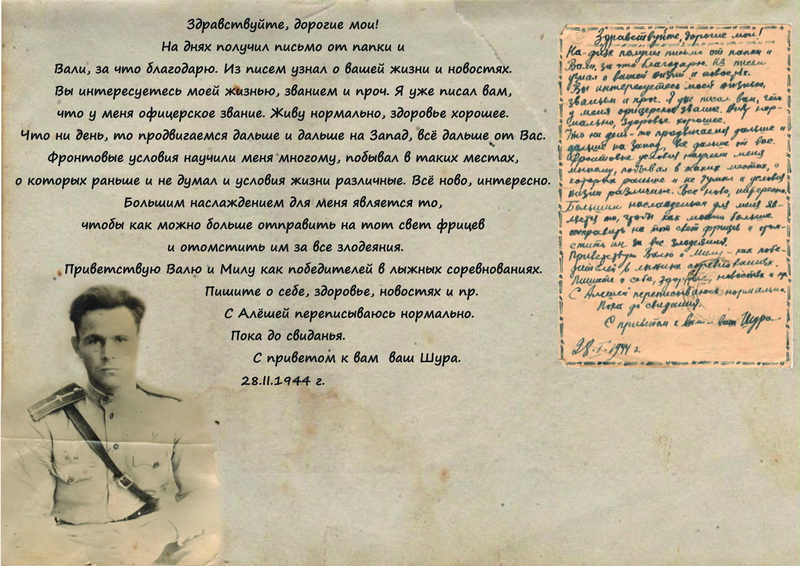 Здравствуйте, дорогие мои!
На днях получил письмо от папки и
Вали, за что благодарю. Из писем узнал о вашей жизни и новостях.
Вы интересуетесь моей жизнью, званием и проч. Я уже писал вам,
что у меня офицерское звание. Живу нормально, здоровье хорошее.
Что ни день, то продвигаемся дальше и дальше на Запад, всё дальше от Вас.
Фронтовые условия научили меня многому, побывал в таких местах,
о которых раньше и не думал и условия жизни различные. Всё ново, интересно.
Большим наслаждением для меня является то,
чтобы как можно больше отправить на тот свет фрицев
и отомстить им за все злодеяния.
Приветствую Валю и Милу как победителей в лыжных соревнованиях.
Пишите о себе, здоровье, новостях и пр.
С Алёшей переписываюсь нормально.
Пока до свиданья.
С приветом к вам ваш Шура.
28.II.1944 г.
Здравствуйте, дорогие мои!
На-днях получил письмо от папки и
Вали, за что благодарю. Из писем
узнал о вашей жизни и новостях.
Вы интересуетесь моей жизнью,
званием и проч. Я уже писал вам, что
у меня офицерское звание. Живу нор-
мально, здоровье хорошее.
Что ни день - то продвигаемся дальше и
дальше на Запад, все дальше от вас.
Фронтовые условия научили меня
многому, побывал в таких местах, о
которых раньше и не думал и условия
жизни различные. Все ново, интересно.
Большим наслаждением для меня яв-
ляется то, чтобы как можно больше
отправить на тот свет фрицев и отом-
стить им за все злодеяния.
Приветствую Валю и Милу - как побе-
дителей в лыжных соревнованиях.
Пишите о себе, здоровье, новостях и пр.
С Алешей переписываюсь нормально
Пока до свидания.
С приветом к вам - ваш Шура
1944 г.